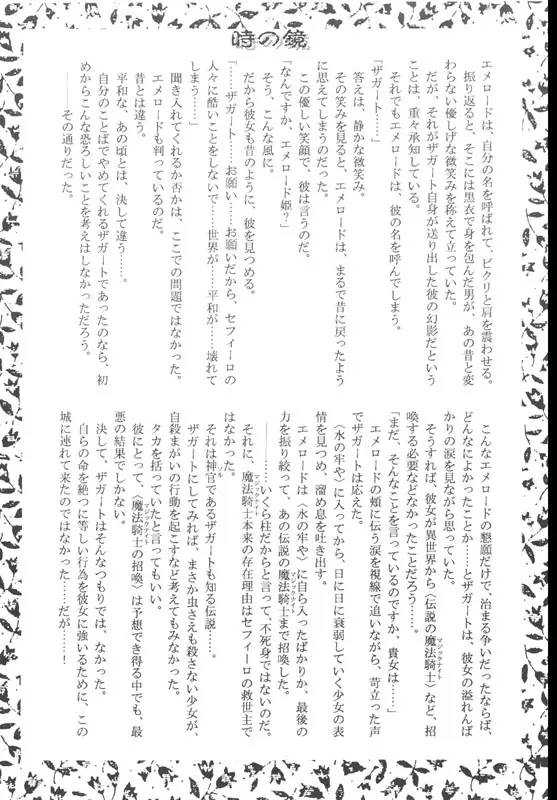 時の鏡
エメロードは、自分の名を呼ばれて、ビクリと肩を震わせる。
振り返ると、そこには黒衣で身を包んだ男が、あの昔と変
わらない優しげな微笑みを称えて立っていた。
だが、それがザガート自身が送り出した彼の幻影だという
ことは、重々承知している。
それでもエメロードは、彼の名を呼んでしまう。
「ザガート……」
答えは、静かな微笑み。
その笑みを見ると、エメロードは、まるで昔に戻ったよう
に思えてしまうのだった。
この優しい笑顔で、彼は言うのだ。
「なんですか、エメロード姫?」
そう、こんな風に。
だから彼女も昔のように、彼を見つめる。
「……ザガート……お願い……お願いだから、セフィーロの
人々に酷いことをしないで……世界が……平和が……壊れて
しまう……」
聞き入れてくれるか否かは、ここでの問題ではなかった。
エメロードも判っているのだ。
昔とは違う。
平和な、あの頃とは、決して違う……。
自分のことばでやめてくれるザガートであったのなら、初
めからこんな恐ろしいことを考えはしなかっただろう。
――その通りだった。
こんなエメロードの懇願だけで、治まる争いだったならば、
どんなによかったことか……とザガートは、彼女の溢れんば
かりの涙を見ながら思っていた。
そうすれば、彼女が異世界から〈伝説の魔法騎士〉など、招
喚する必要などなかったことだろう……。
「まだ、そんなことを言っているのですか、貴女は……」
エメロードの頬に伝う涙を視線で追いながら、苛立った声
でザガートは応えた。
〈水の牢や〉に入ってから、日に日に衰弱していく少女の表
情を見つめ、溜め息を吐き出す。
エメロードは〈水の牢や〉に自ら入ったばかりか、最後の
力を振り絞って、あの伝説の魔法騎士まで招喚した。
――いくら柱だからと言って、不死身ではないのだ。
それに、魔法騎士本来の存在理由はセフィーロの救世主で
はなかった。
それは神官であるザガートも知る伝説……。
ザガートにしてみれば、まさか虫さえも殺さない少女が、
自殺まがいの行動を起こすなど考えてもみなかった。
タカを括っていたと言ってもいい。
彼にとって、〈魔法騎士の招喚〉は予想でき得る中でも、最
悪の結果でしかない。
決して、ザガートはそんなつもりでは、なかった。
自らの命を絶つに等しい行為を彼女に強いるために、この
城に連れて来たのではなかった……だが……!